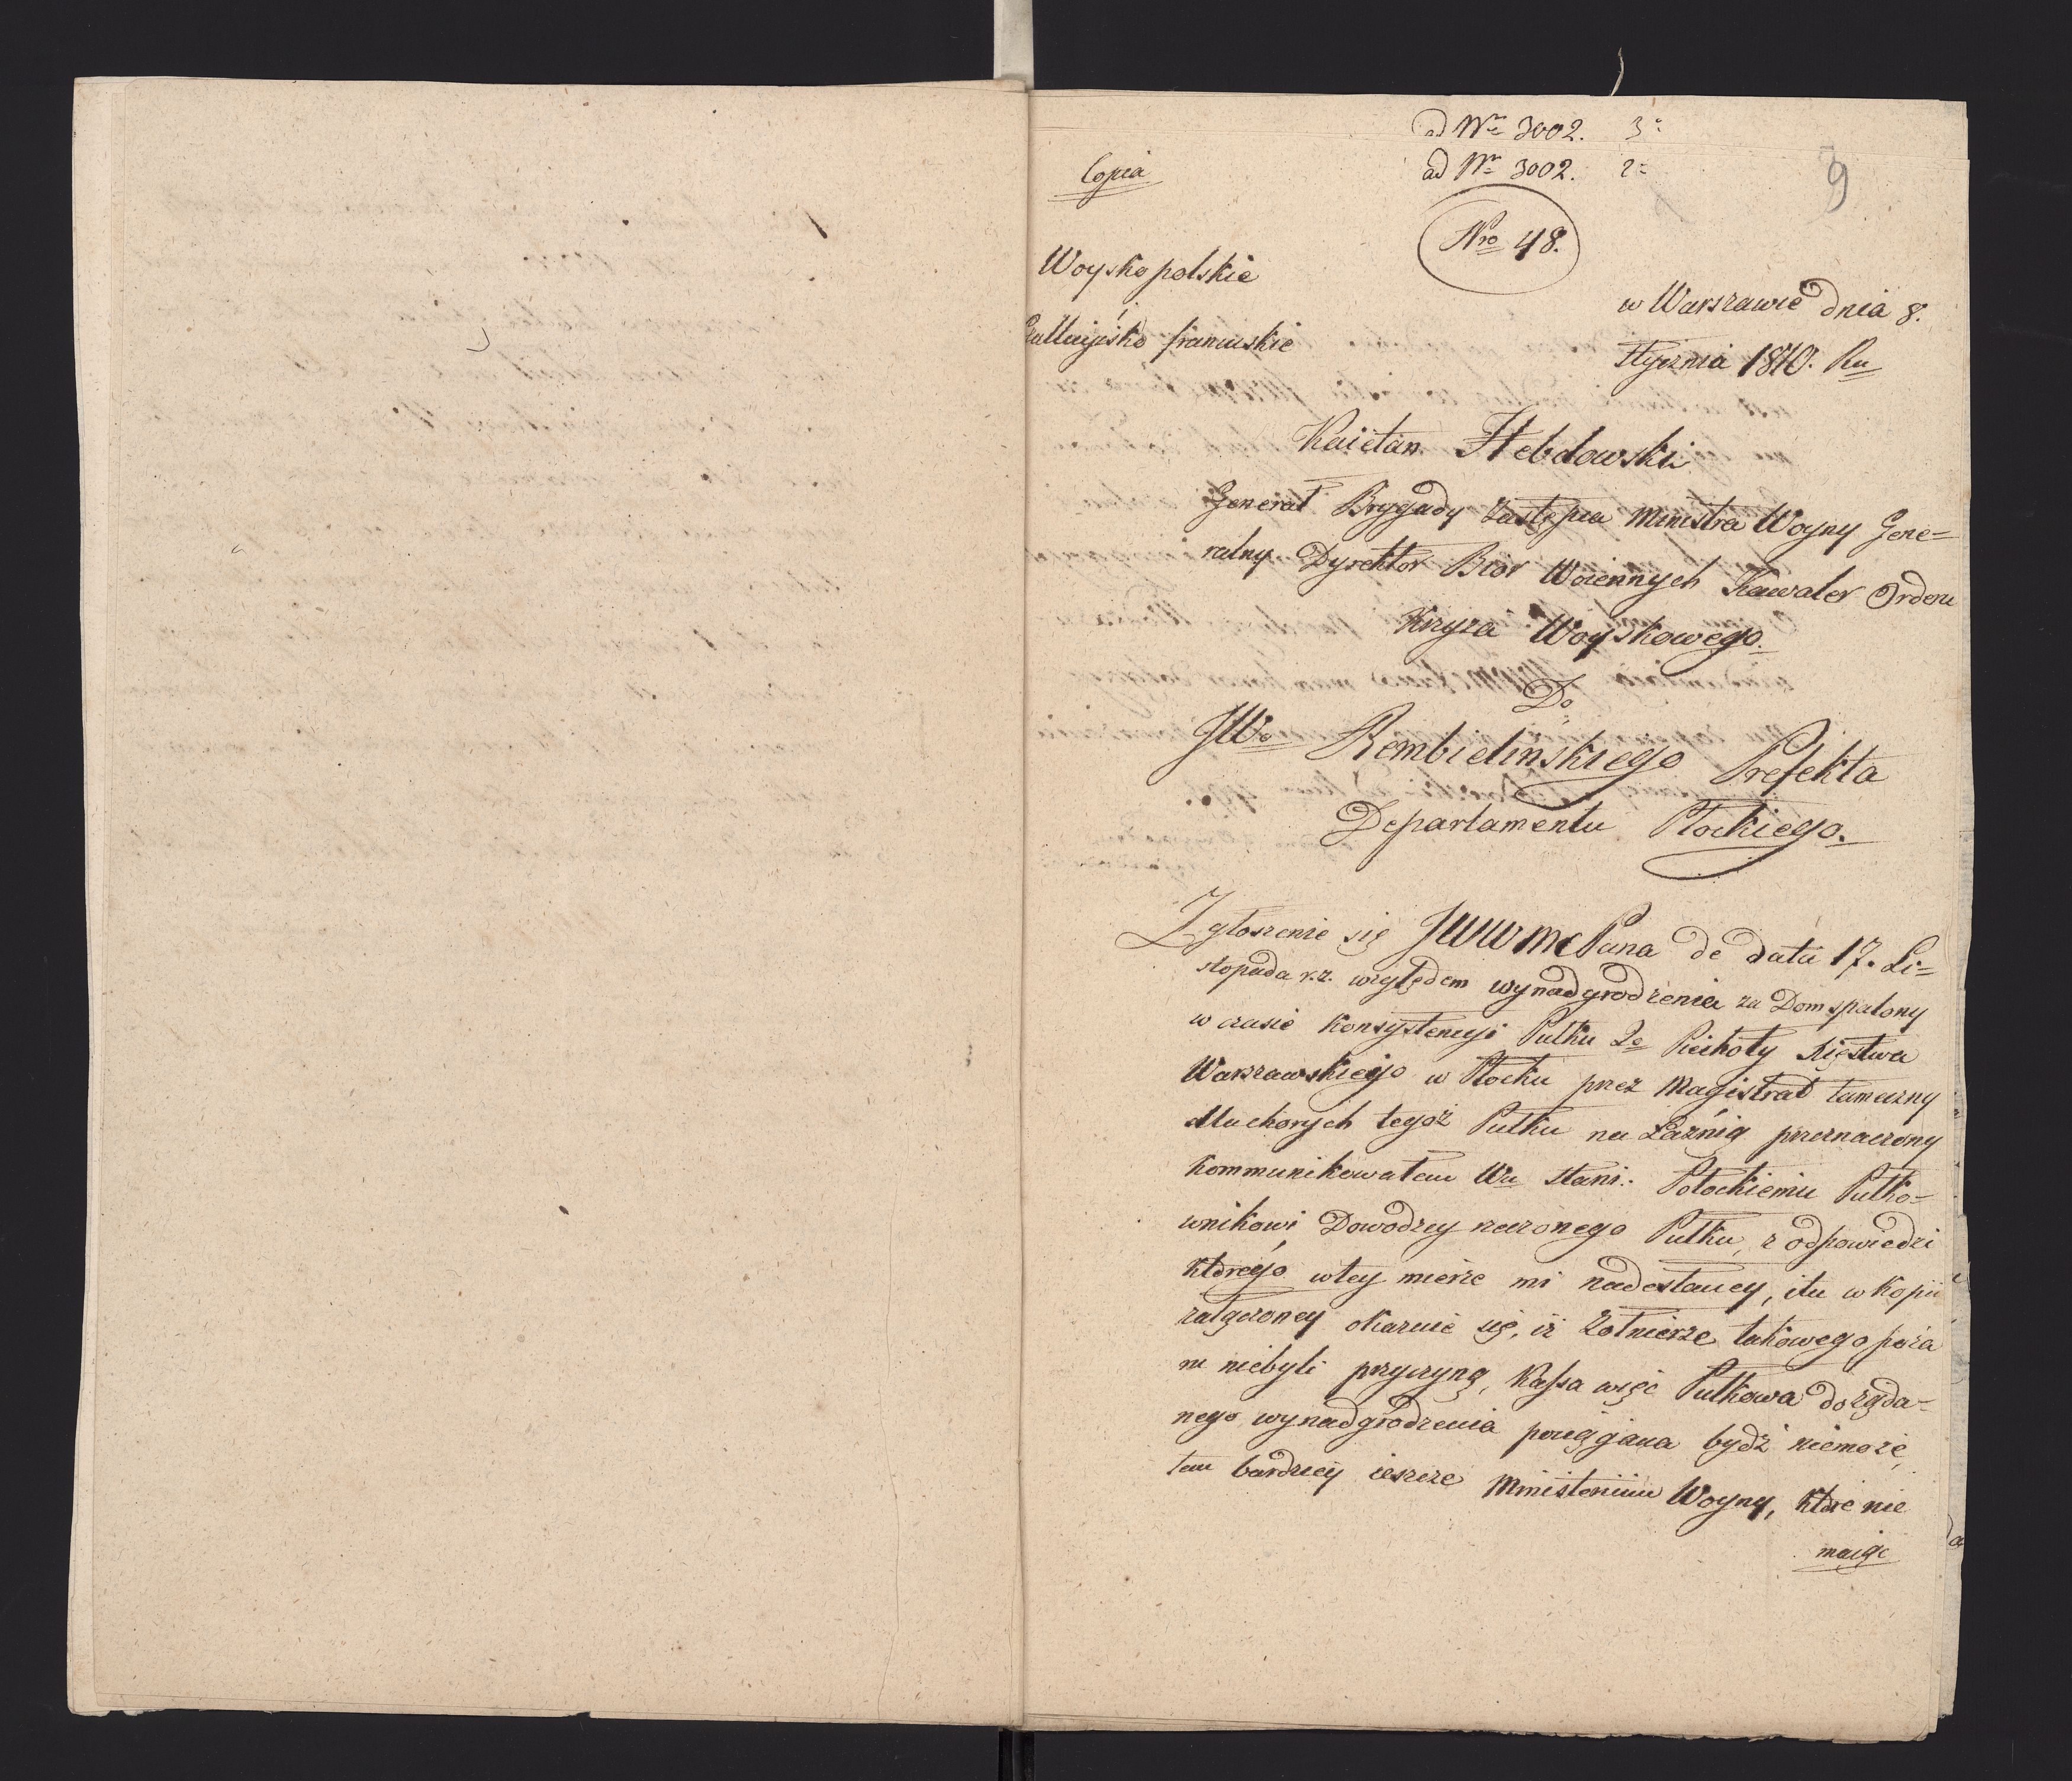 ad Nro 3002. 3o
ad Nro 3002. 2o
9
Copia
Nro 48.
Woysko polskie
i
francuskie
w Warszawie dnia 8.
Stycznia 1810. Ru
Kaietan Hebdowski
Generał Brygady Zastępca Ministra Woyny Gene=
ralny Dyrektor Biór Woiennych Kawaler Orderu
Krzyża Woyskowego.
Do
JWo Rembielinskiego Prefekta
Departamentu Płockiego.
Zgłoszenie się JWWMcPana de data 17. Li=
stopada r.z. względem wynadgrodzenia za Dom spalony
w czasie konsystencyi Pułku 2o Piechoty Xięstwa
Warszawskiego w Płocku przez Magistrat tameczny
dla chorych tegoż Pułku na Łaźnią przeznaczony
kommunikowałem Wu Stani: Potockiemu Pułko=
wnikowi Dowodzcy rzeczonego Pułku, z odpowiedzi
którego wtey mierze mi nadesłaney, i tu w kopii
załączoney okazuie się, iż Żołnierze takowego poża
ru niebyli przyczyną, Kassa więc Pułkowa do żąda=
nego wynadgrodzenia pociągana bydź niemoże,
tem bardziey ieszcze Ministerium Woyny, które nie
maiąc